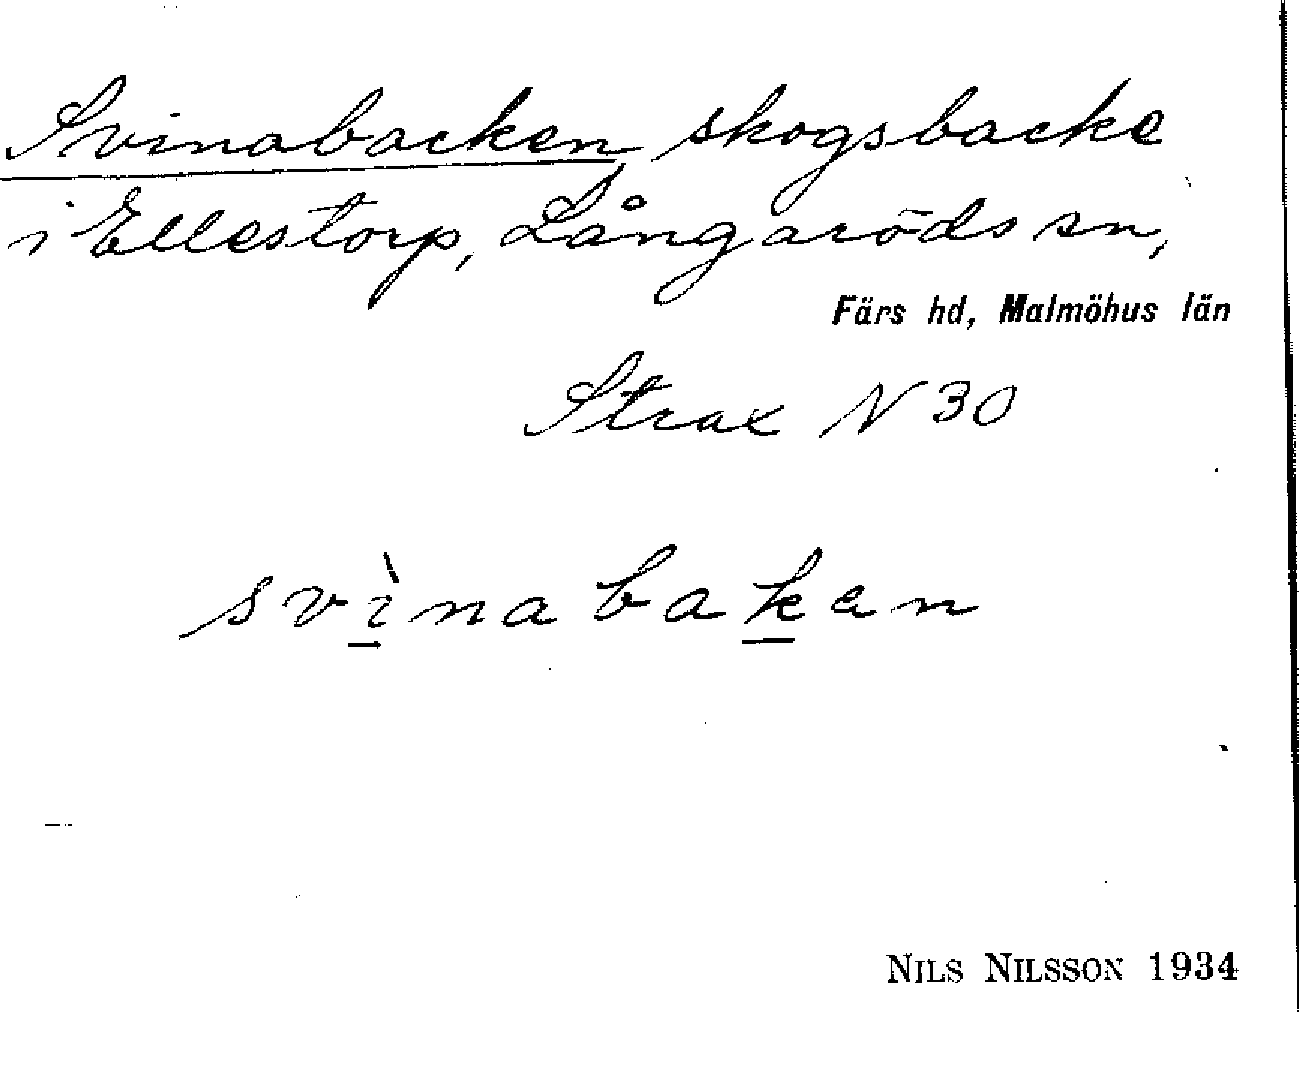 Svinabacken skogsbacke
i Ellestorp, Långaröds sn,
Färs hd, Malmöhus län
Strax N 30
svìnabaken
NILS NILSSON 1934